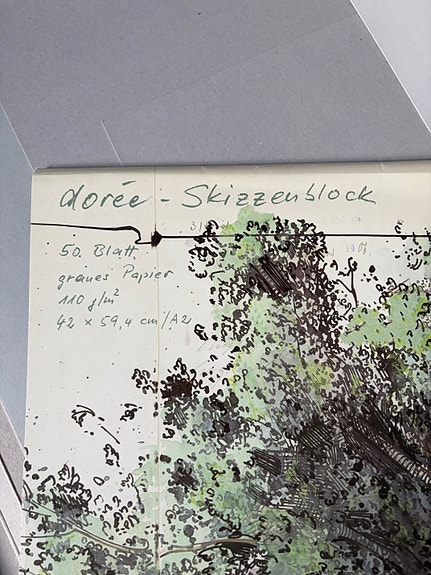 dorée - Skizzenblock
50. Blatt
graues Papier
110 g/m²
42 x 59,4 cm/A2